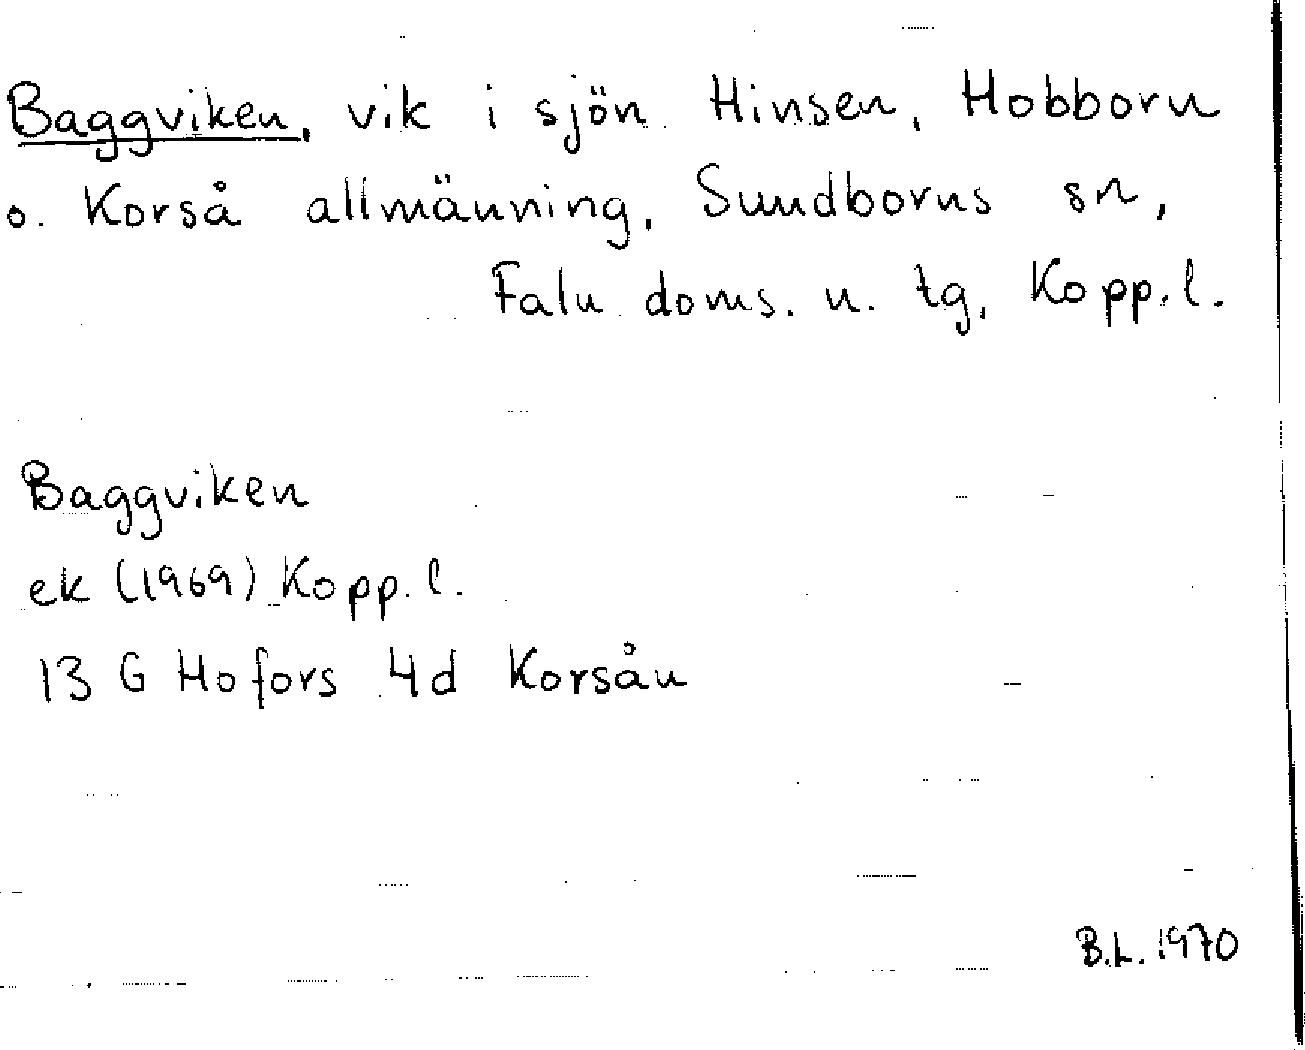 Baggviken, vik i sjön Hinsen, Hobborn
o. Korså allmänning, Sundborns sn,
Falu doms. n. tg, Kopp.l.
Baggviken
ek (1969) Kopp.l.
13 G Hofors 4d Korsån
B.L. 1970